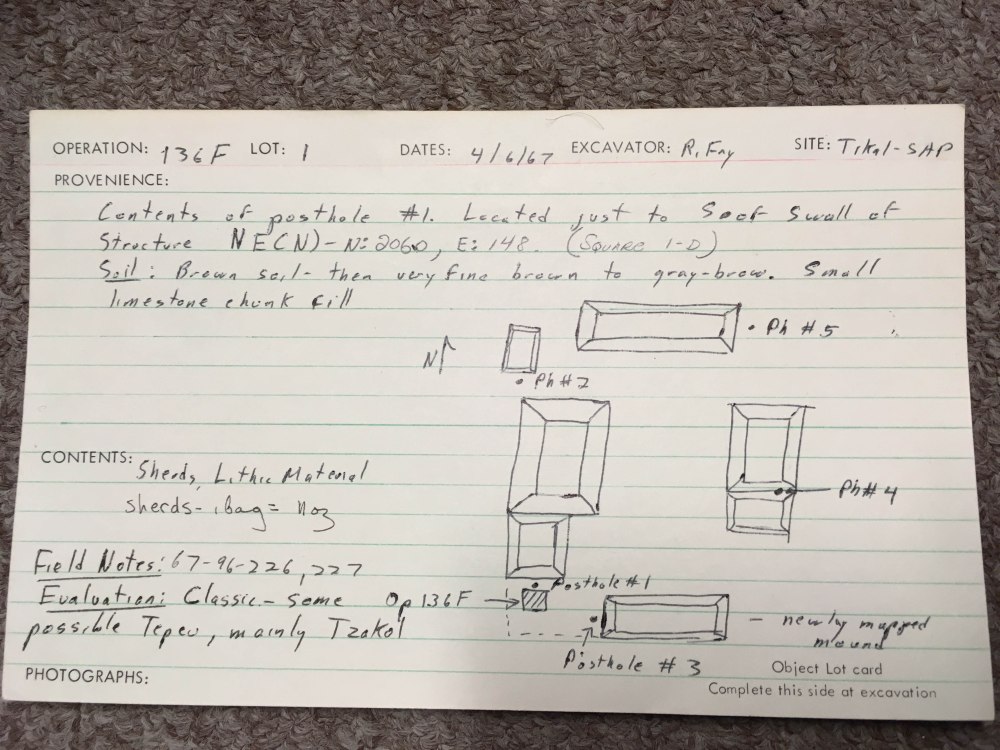 OPERATION: 136F LOT: 1 DATES: 4/6/67 EXCAVATOR: R. Fry SITE: Tikal-SAP
PROVENIENCE:
Contents of posthole #1. Located just to S of S wall of
Structure NE(N)- N: 2060, E: 148. (SQUARE 1-D)
Soil: Brown soil- then very fine brown to gray-brow. Small
limestone chunk fill
Ph #5
N
Ph #2
CONTENTS: Sherds, Lithic Material
Ph# 4
sherds- 1 bag =
Field Notes: 67-96-226, 227
Posthole #1
Evaluation: Classic- some Op 136F
possible Tepeu, mainly Tzakol
- newly mapped
mound
Posthole # 3
Object Lot card
PHOTOGRAPHS:
Complete this side at excavation